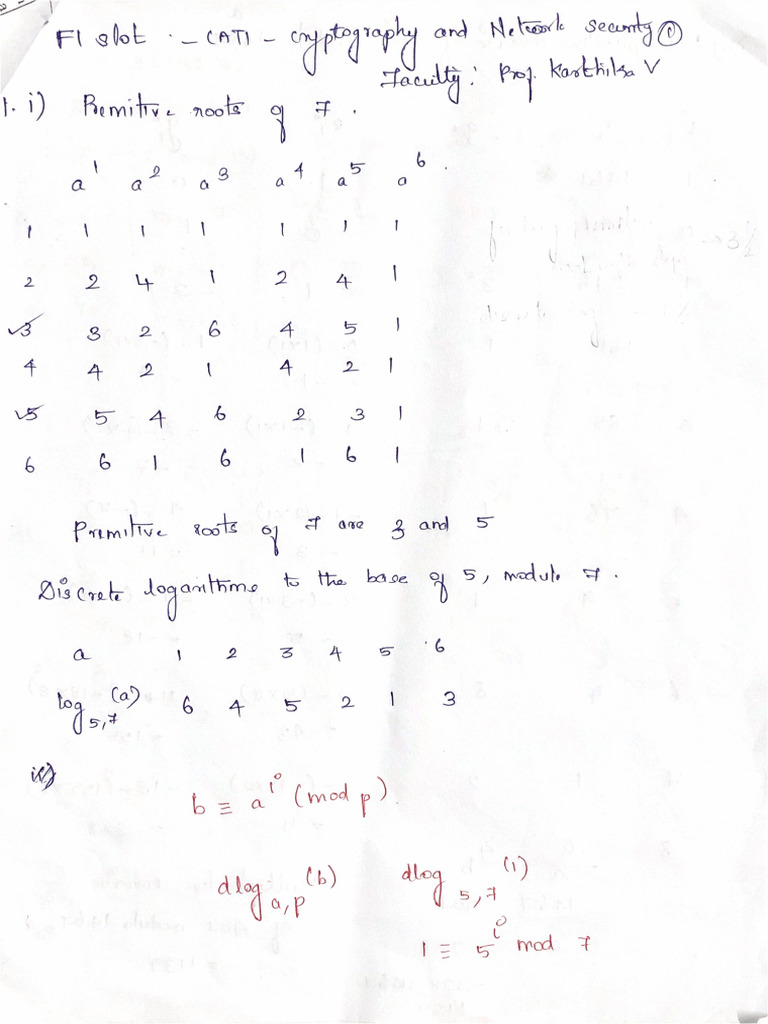 F1 slot - CAT1 - Cryptography and Network security ①
Faculty: Prof. Karthika V
1. i) Primitive roots of 7.
a^1 a^2 a^3 a^4 a^5 a^6
1 1 1 1 1 1 1
2 2 4 1 2 4 1
✓3 3 2 6 4 5 1
4 4 2 1 4 2 1
✓5 5 4 6 2 3 1
6 6 1 6 1 6 1
Primitive roots of 7 are 3 and 5
Discrete logarithms to the base of 5, modulo 7.
a 1 2 3 4 5 6
log_{5,7}(a) 6 4 5 2 1 3
b ≡ a^i (mod p).
dlog_{a,p}(b) dlog_{5,7}(1)
1 ≡ 5^i mod 7